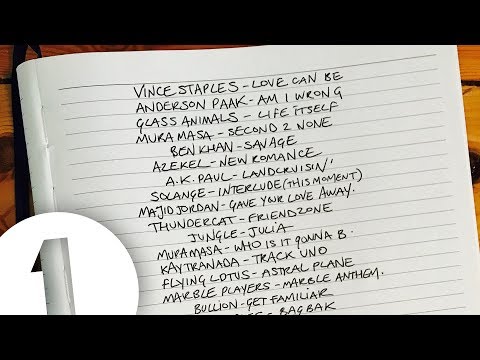 VINCE STAPLES - LOVE CAN BE
ANDERSON PAAK - AM I WRONG
GLASS ANIMALS - LIFE ITSELF
MURA MASA - SECOND 2 NONE
BEN KHAN - SAVAGE
AZEKEL - NEW ROMANCE
A.K. PAUL - LANDCRUISIN'
SOLANGE - INTERLUDE (THIS MOMENT)
MAJID JORDAN - GAVE YOUR LOVE AWAY.
THUNDERCAT - FRIENDZONE
JUNGLE - JULIA
MURAMASA - WHO IS IT GONNA B.
KAYTRANADA - TRACK UNO
FLYING LOTUS - ASTRAL PLANE
MARBLE PLAYERS - MARBLE ANTHEM.
BULLION - GET FAMILIAR
- BAGBAK
1